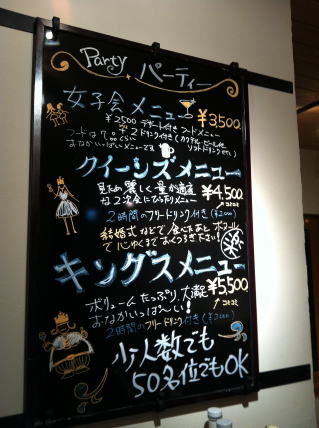 Party パーティー
女子会メニュー ¥3,500
¥2500 デザート付き フードメニュー
フードは7品くらい
¥2ドリンク付き(カクテル、ビール、他
おなかいっぱいメニューです ソフトドリンクです)
クイーンズメニュー
見ため麗しく量が適度 ¥4,500
な2次会にぴったりメニュー コミコミ
2時間のフリードリンク付き(¥2000)
結婚式などで食べたあと
で心ゆくまでおくつろぎ下さい!
キングスメニュー
ボリュームたっぷり、大満足 ¥5,500
おなかいっぱ〜い! コミコミ
2時間のフリードリンク付き(¥2000)
少人数でも
50名位でもOK